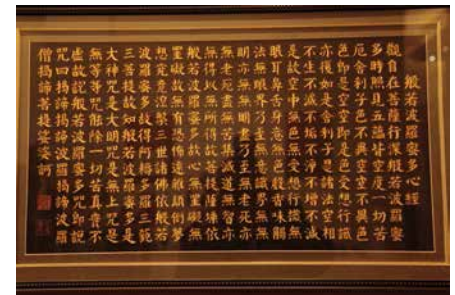 般若波羅蜜多心經
觀自在菩薩行深般若波羅蜜
多時照見五蘊皆空度一切苦
厄舍利子色不異空空不異色
色即是空空即是色受想行識
亦復如是舍利子是諸法空相
不生不滅不垢不淨不增不減
是故空中無色無受想行識無
眼耳鼻舌身意無色聲香味觸
法無眼界乃至無意識界無無
明亦無無明盡乃至無老死亦
無老死盡無苦集滅道無智亦
無得以無所得故菩提薩埵依
般若波羅蜜多故心無罣礙無
罣礙故無有恐怖遠離顛倒夢
想究竟涅槃三世諸佛依般若
波羅蜜多故得阿耨多羅三藐
三菩提故知般若波羅蜜多是
大神咒是大明咒是無上咒是
無等等咒能除一切苦真實不
虛故說般若波羅蜜多咒即說
咒曰揭諦揭諦波羅揭諦波羅
僧揭諦菩提娑婆訶